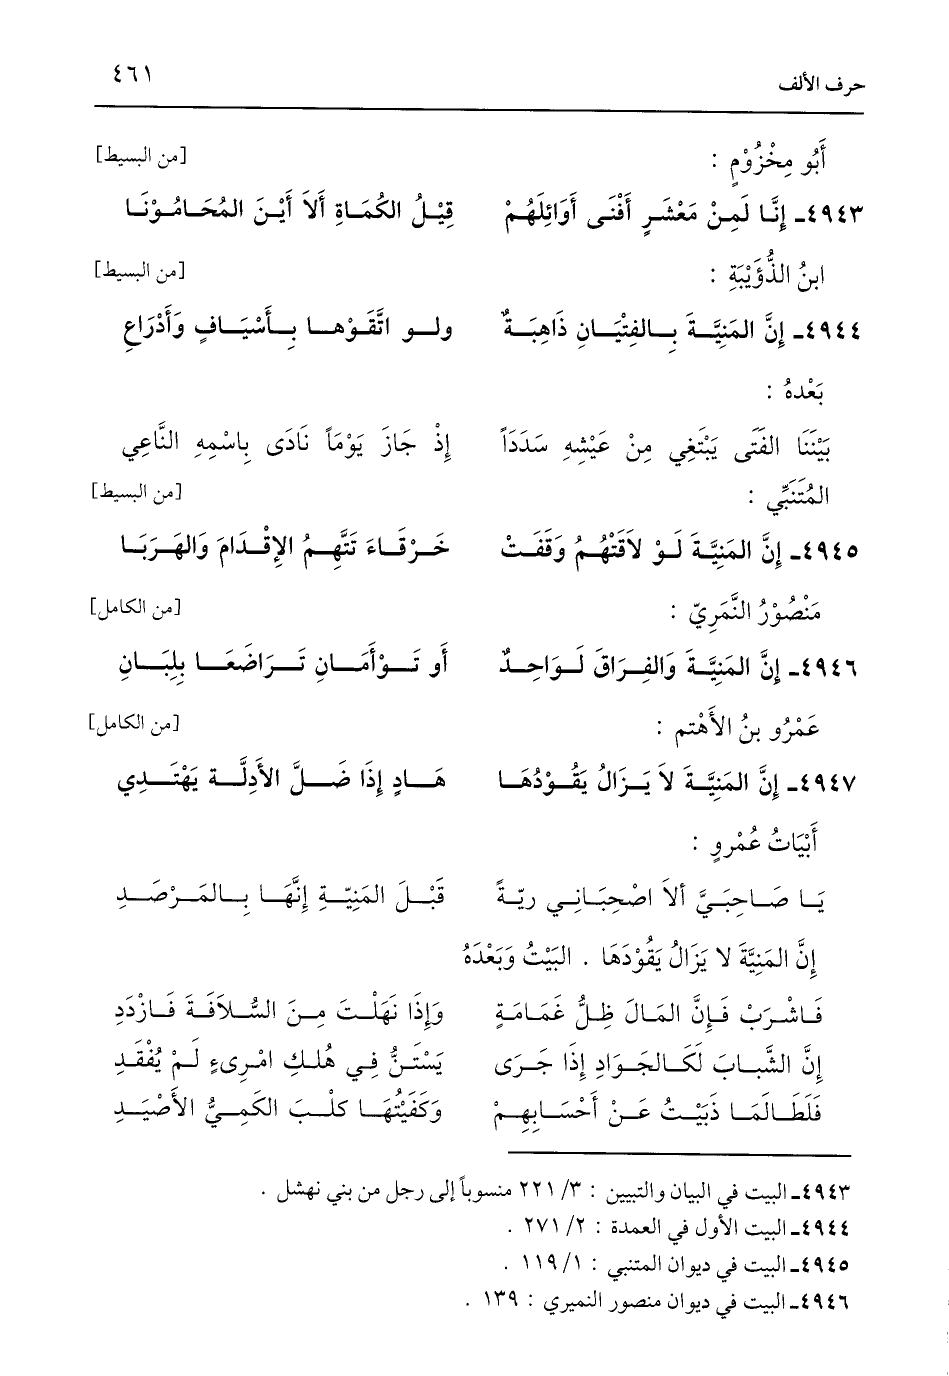 حرف الألف ٤٦١
أَبُو مِخْزُوْمٍ : [من البسيط]
٤٩٤٣ـ إِنَّا لَمِنْ مَعْشَرٍ أَفْنَى أَوَائِلَهُمْ قِيْلُ الكُمَاةِ أَلاَ أَيْنَ المُحَامُوْنَا
ابنُ الذُّؤَيْبَةِ : [من البسيط]
٤٩٤٤ـ إِنَّ المَنِيَّةَ بِالفِتْيَانِ ذَاهِبَةٌ ولو اتَّقَوْهَا بِأَسْيَافٍ وَأَدْرَاعِ
بَعْدهُ :
بَيْنَنَا الفَتَى يَبْتَغِي مِنْ عَيْشِهِ سَدَدَاً إِذْ حَازَ يَوْمَاً نَادَى بِاسْمِهِ النَّاعِي
المُتَنَبِّي : [من البسيط]
٤٩٤٥ـ إِنَّ المَنِيَّةَ لَوْ لاَقَتْهُمُ وَقَفَتْ خَرْقَاءَ تَتَّهِمُ الإِقْدَامَ وَالهَرَبَا
مَنْصُوْرُ النَّمَرِيّ : [من الكامل]
٤٩٤٦ـ إِنَّ المَنِيَّةَ وَالفِرَاقَ لَوَاحِدٌ أَو تَوْأَمَانِ تَرَاضَعَا بِلِبَانِ
عَمْرُو بنُ الأَهْتم : [من الكامل]
٤٩٤٧ـ إِنَّ المَنِيَّةَ لاَ يَزَالُ يَقُوْدُهَا هَادٍ إِذَا ضَلَّ الأَدِلَّة يَهْتَدِي
أَبْيَاتُ عُمْروٍ :
يَا صَاحِبَيَّ أَلاَ اصْحِبَانِي ريّةً قَبْلَ المَنِيّةِ إِنَّهَا بِالمَرْصَدِ
إِنَّ المَنِيَّةَ لا يَزَالُ يَقُوْدَهَا . البَيْتُ وَبَعْدَهُ
فَاشْرَبْ فَإِنَّ المَالَ ظِلُّ غَمَامَةٍ وَإِذَا نَهَلْتَ مِنَ السُّلاَفَةَ فَازْدَدِ
إِنَّ الشَّبَابَ لَكَالجَوَادِ إِذَا جَرَى يَسْتَنُّ فِي هُلكِ امْرِىءٍ لَمْ يُفْقَدِ
فَلَطَالَمَا ذَبَيْتُ عَنْ أَحْسَابِهِمْ وَكَفَيْتُهَا كَلْبَ الكَمِيُّ الأَصْيَدِ
٤٩٤٣ـ البيت في البيان والتبيين : ٣/ ٢٢١ منسوباً إلى رجل من بني نهشل .
٤٩٤٤ـ البيت الأول في العمدة : ٢/ ٢٧١ .
٤٩٤٥ـ البيت في ديوان المتنبي : ١/ ١١٩ .
٤٩٤٦ـ البيت في ديوان منصور النميري : ١٣٩ .